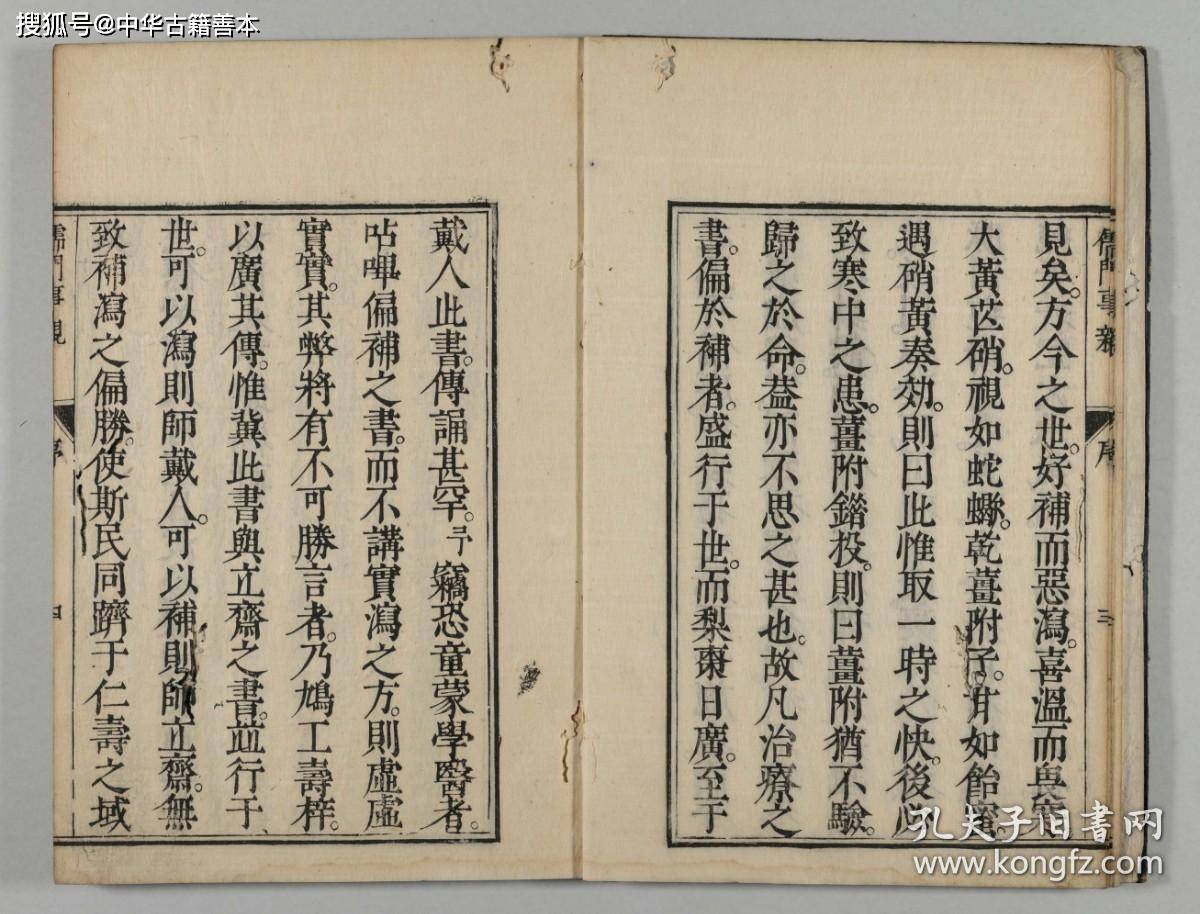 搜狐号@中华古籍善本
儒門事親
序
三
見矣。方今之世。好補而惡瀉。喜溫而畏寒。
大黃芒硝。視如蛇蝎。乾薑附子。甘如飴蜜。
遇硝黃奏効。則曰此惟取一時之快。後必
致寒中之患。薑附錯投。則曰薑附猶不驗。
歸之於命。葢亦不思之甚也。故凡治療之
書。偏於補者。盛行于世。而梨棗日廣。至于
戴人此書。傳誦甚罕。予竊恐童蒙學醫者。
呫嗶偏補之書。而不講實瀉之方。則虛虛
實實。其弊將有不可勝言者。乃鳩工壽梓。
以廣其傳。惟冀此書與立齋之書。並行于
世。可以瀉則師戴人。可以補則師立齋。無
致補瀉之偏勝。使斯民同躋于仁壽之域
儒門事親
序
四
孔夫子旧书网
www.kongfz.com